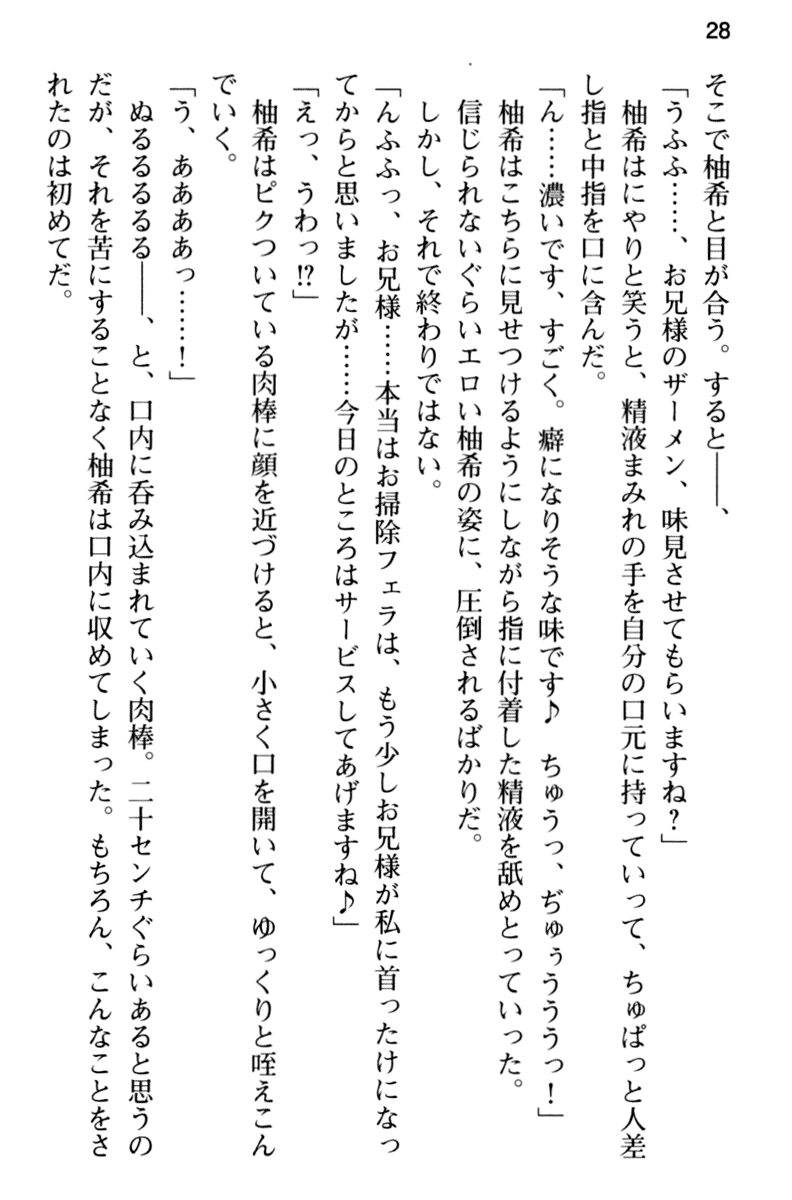 28
そこで柚希と目が合う。すると――、
「うふふ……、お兄様のザーメン、味見させてもらいますね？」
柚希はにやりと笑うと、精液まみれの手を自分の口元に持っていって、ちゅぱっと人差
し指と中指を口に含んだ。
「ん……濃いです、すごく。癖になりそうな味です♪　ちゅうっ、ぢゅぅうううっ！」
柚希はこちらに見せつけるようにしながら指に付着した精液を舐めとっていった。
信じられないぐらいエロい柚希の姿に、圧倒されるばかりだ。
しかし、それで終わりではない。
「んふふっ、お兄様……本当はお掃除フェラは、もう少しお兄様が私に首ったけになっ
てからと思いましたが……今日のところはサービスしてあげますね♪」
「えっ、うわっ!?」
柚希はピクついている肉棒に顔を近づけると、小さく口を開いて、ゆっくりと咥えこん
でいく。
「う、ああああっ……！」
ぬるるるるる――、と、口内に呑み込まれていく肉棒。二十センチぐらいあると思うの
だが、それを苦にすることなく柚希は口内に収めてしまった。もちろん、こんなことをさ
れたのは初めてだ。